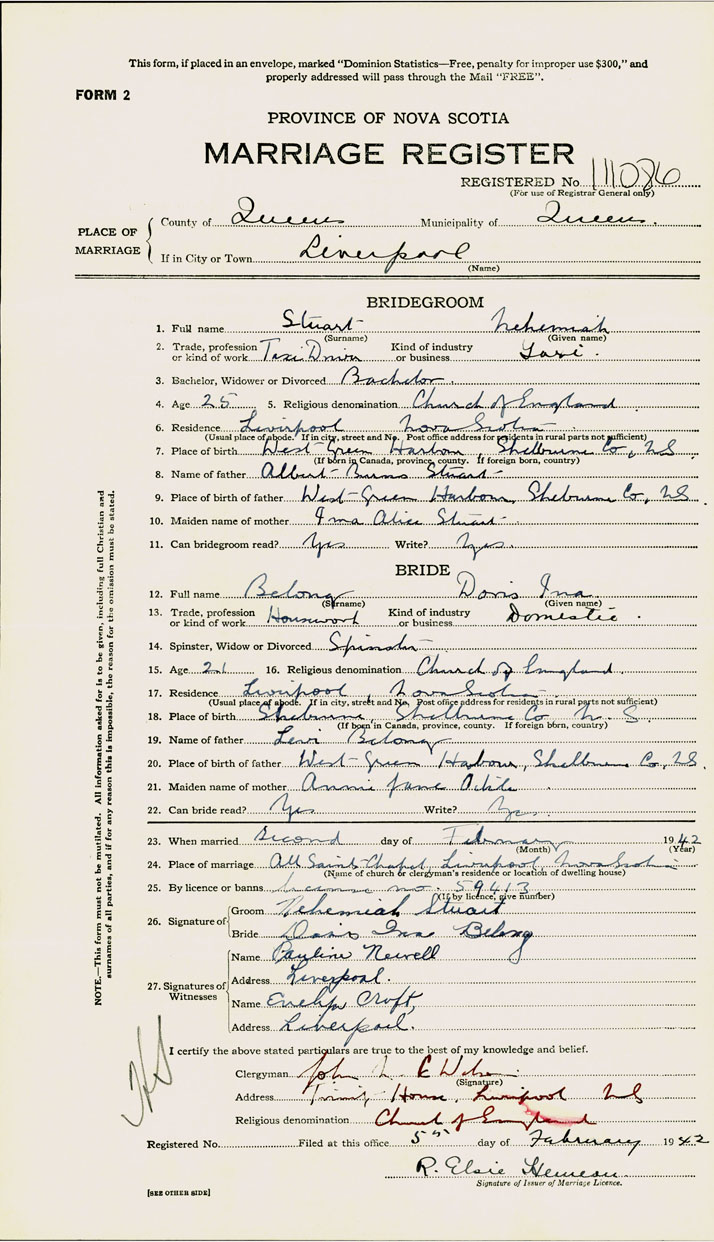 This form, if placed in an envelope, marked "Dominion Statistics—Free, penalty for improper use $300," and
properly addressed will pass through the Mail "FREE".
FORM 2
PROVINCE OF NOVA SCOTIA
MARRIAGE REGISTER
REGISTERED No 111086
(For use of Registrar General only)
PLACE OF MARRIAGE
County of Queens Municipality of Queens.
If in City or Town Liverpool
(Name)
BRIDEGROOM
1. Full name Stuart Nehemiah
(Surname) (Given name)
2. Trade, profession or kind of work Taxi Driver Kind of industry or business Taxi.
3. Bachelor, Widower or Divorced Bachelor.
4. Age 25 5. Religious denomination Church of England
6. Residence Liverpool Nova Scotia
(Usual place of abode. If in city, street and No. Post office address for residents in rural parts not sufficient)
7. Place of birth West Green Harbour Shelburne Co, N.S
(If born in Canada, province, county. If foreign born, country)
8. Name of father Albert Burns Stuart
9. Place of birth of father West Green Harbour, Shelburne Co, N.S.
10. Maiden name of mother Ima Alice Stuart
11. Can bridegroom read? Yes Write? Yes.
BRIDE
12. Full name Belong Doris Ina
(Surname) (Given name)
13. Trade, profession or kind of work Housework Kind of industry or business Domestic.
14. Spinster, Widow or Divorced Spinster
15. Age 21 16. Religious denomination Church of England.
17. Residence Liverpool, Nova Scotia
(Usual place of abode. If in city, street and No. Post office address for residents in rural parts not sufficient)
18. Place of birth Shelburne, Shelburne Co N. S
(If born in Canada, province, county. If foreign born, country)
19. Name of father Levi Belong
20. Place of birth of father West Green Harbour, Shelburne Co, N.S.
21. Maiden name of mother Annie Jane
22. Can bride read? Yes Write? Yes.
23. When married Second day of February 1942
(Month) (Year)
24. Place of marriage All Saints Chapel, Liverpool, Nova Scotia
(Name of church or clergyman's residence or location of dwelling house)
25. By licence or banns license no. 59413
(If by licence, give number)
26. Signature of
Groom Nehemiah Stuart
Bride Doris Ina Belong
27. Signatures of Witnesses
Name Pauline Newell
Address Liverpool.
Name Evelyn Croft,
Address Liverpool.
I certify the above stated particulars are true to the best of my knowledge and belief.
Clergyman John
(Signature)
Address Trinity House, Liverpool N.S
Religious denomination Church of England
Registered No. Filed at this office 5th day of February 1942
R. Elsie
Signature of Issuer of Marriage Licence.
[SEE OTHER SIDE]
NOTE.—This form must not be mutilated. All information asked for is to be given, including full Christian and
surnames of all parties, and if for any reason this is impossible, the reason for the omission must be stated.